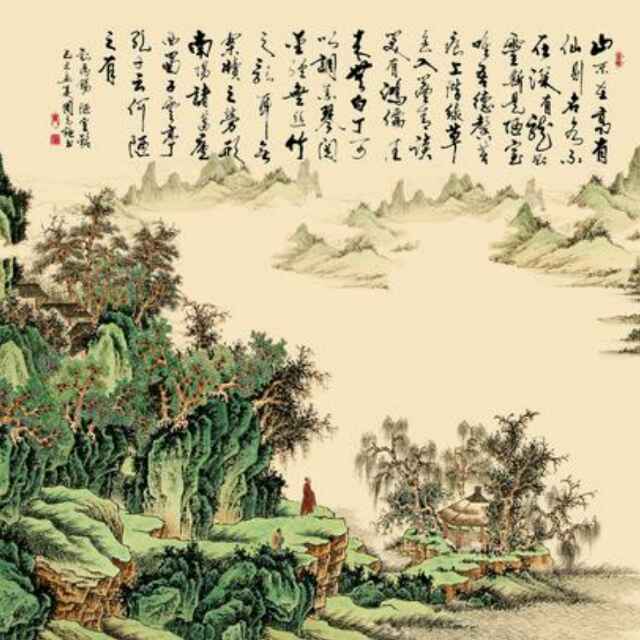 山不在高有
仙则名水不
在深有龍则
靈斯是陋室
唯吾德馨苔
痕上階綠草
色入簾青谈
笑有鴻儒往
來無白丁可
以調素琴閱
金經無丝竹
之亂耳無
案牘之勞形
南陽諸葛廬
西蜀子雲亭
孔子云何陋
之有